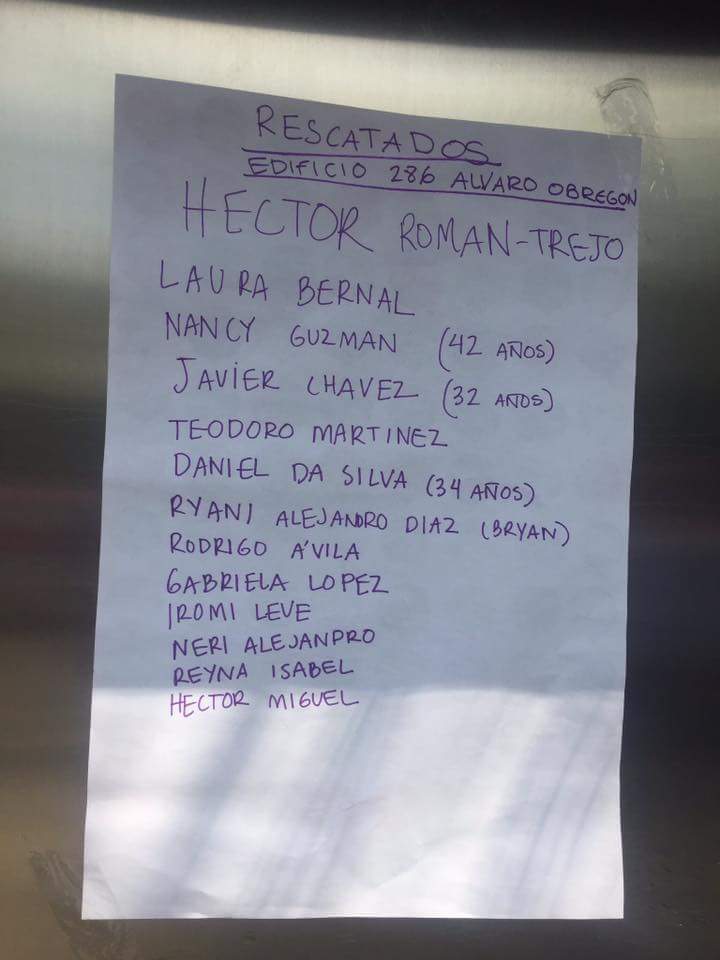 RESCATADOS
EDIFICIO 286 ALVARO OBREGON
HECTOR ROMAN-TREJO
LAURA BERNAL
NANCY GUZMAN (42 AÑOS)
JAVIER CHAVEZ (32 AÑOS)
TEODORO MARTINEZ
DANIEL DA SILVA (34 AÑOS)
RYANI ALEJANDRO DIAZ (BRYAN)
RODRIGO A'VILA
GABRIELA LOPEZ
IROMI LEVE
NERI ALEJANDRO
REYNA ISABEL
HECTOR MIGUEL